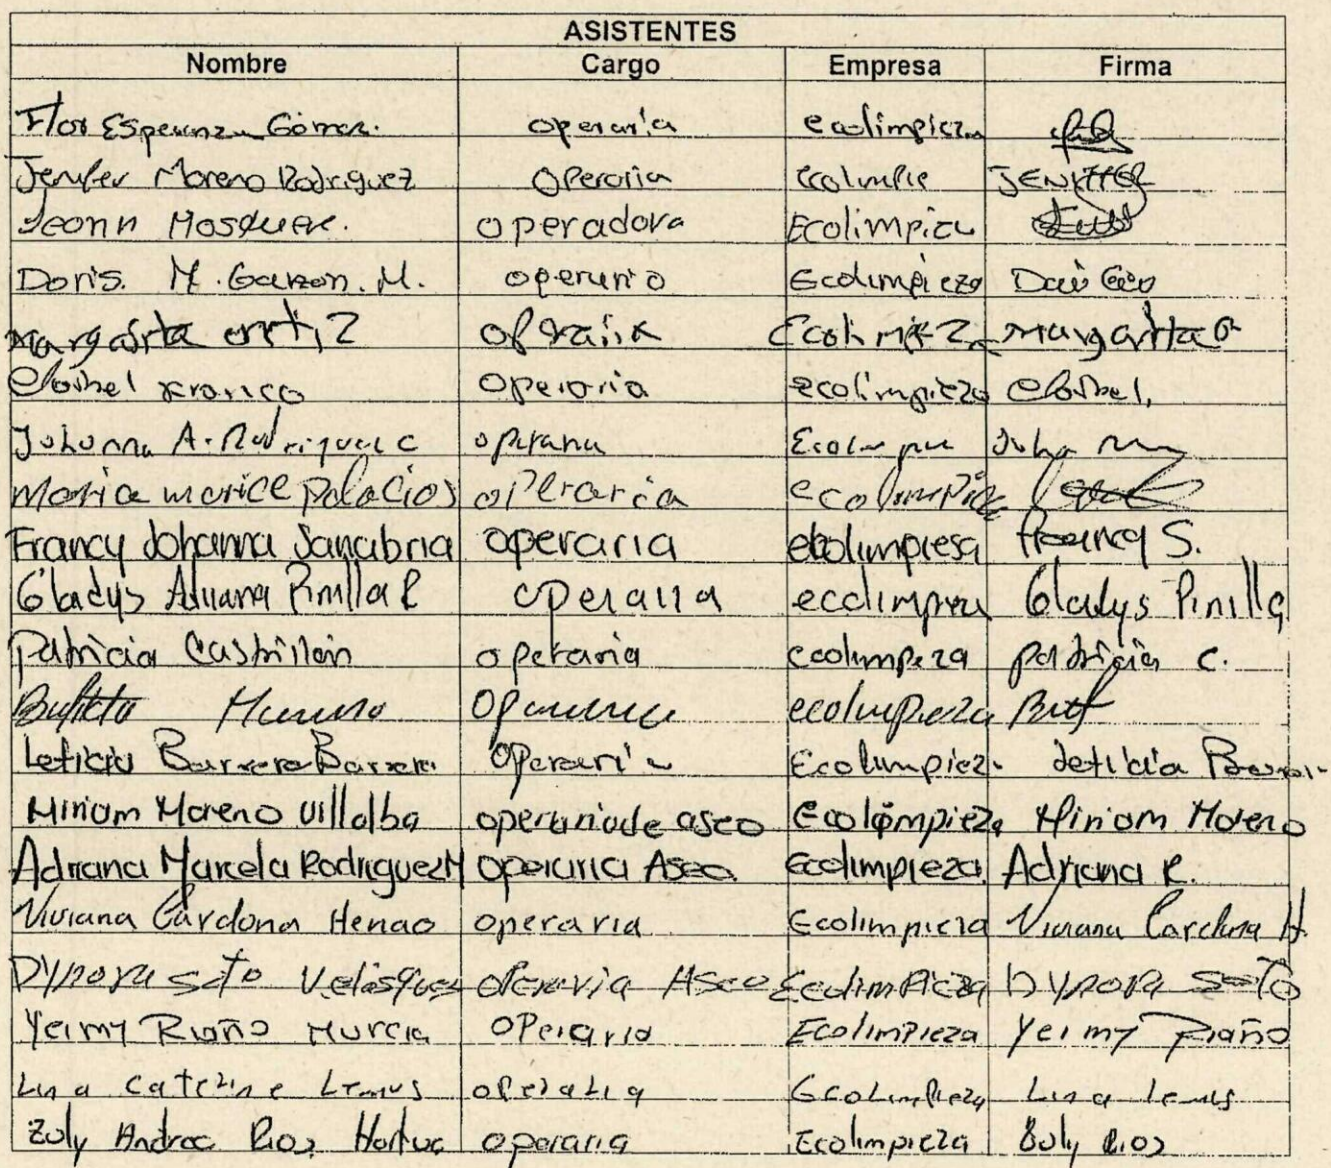 ASISTENTES
Nombre Cargo Empresa Firma
Flor Esperanza Gómez. operaria ecolimpieza
Jenifer Moreno Rodriguez Operaria Ecolimpie JENIFFER
Leonn Mosquera. operadora Ecolimpieza
Doris. M. Garzon. M. operario Ecolimpieza
Margarita ortiz operaria Margarita O
operaria ecolimpieza
Johanna A. Rodriguez C operaria Joha
Maria marice palacios operaria ecolimpieza
Francy Johanna Sanabria operaria ecolimpiesa Francy S.
Gladys Adriana Pinilla R operaria ecolimpieza Gladys Pinilla
Patricia Castrillón operaria ecolimpeza patricia C.
Moreno Operaria ecolimpieza
Leticia Barrera Barrera Operaria Ecolimpieza leticia
Miriam Moreno Villalba operaria de aseo Ecolimpieza Miriam Moreno
Adriana Marcela Rodriguez M operaria Aseo. Ecolimpieza. Adriana R.
Viviana Cardona Henao operaria Ecolimpieza Viviana Cardona H.
Dynora soto Velásquez operaria Aseo Ecolimpieza Dynora Soto
Yeimy Riaño Murcia operario Ecolimpieza Yeimy Riaño
Lina Caterine Lemus operaria Ecolimpieza Lina Lemus
Zuly Andrea Rios Hortua operaria Ecolimpieza Zuly Rios